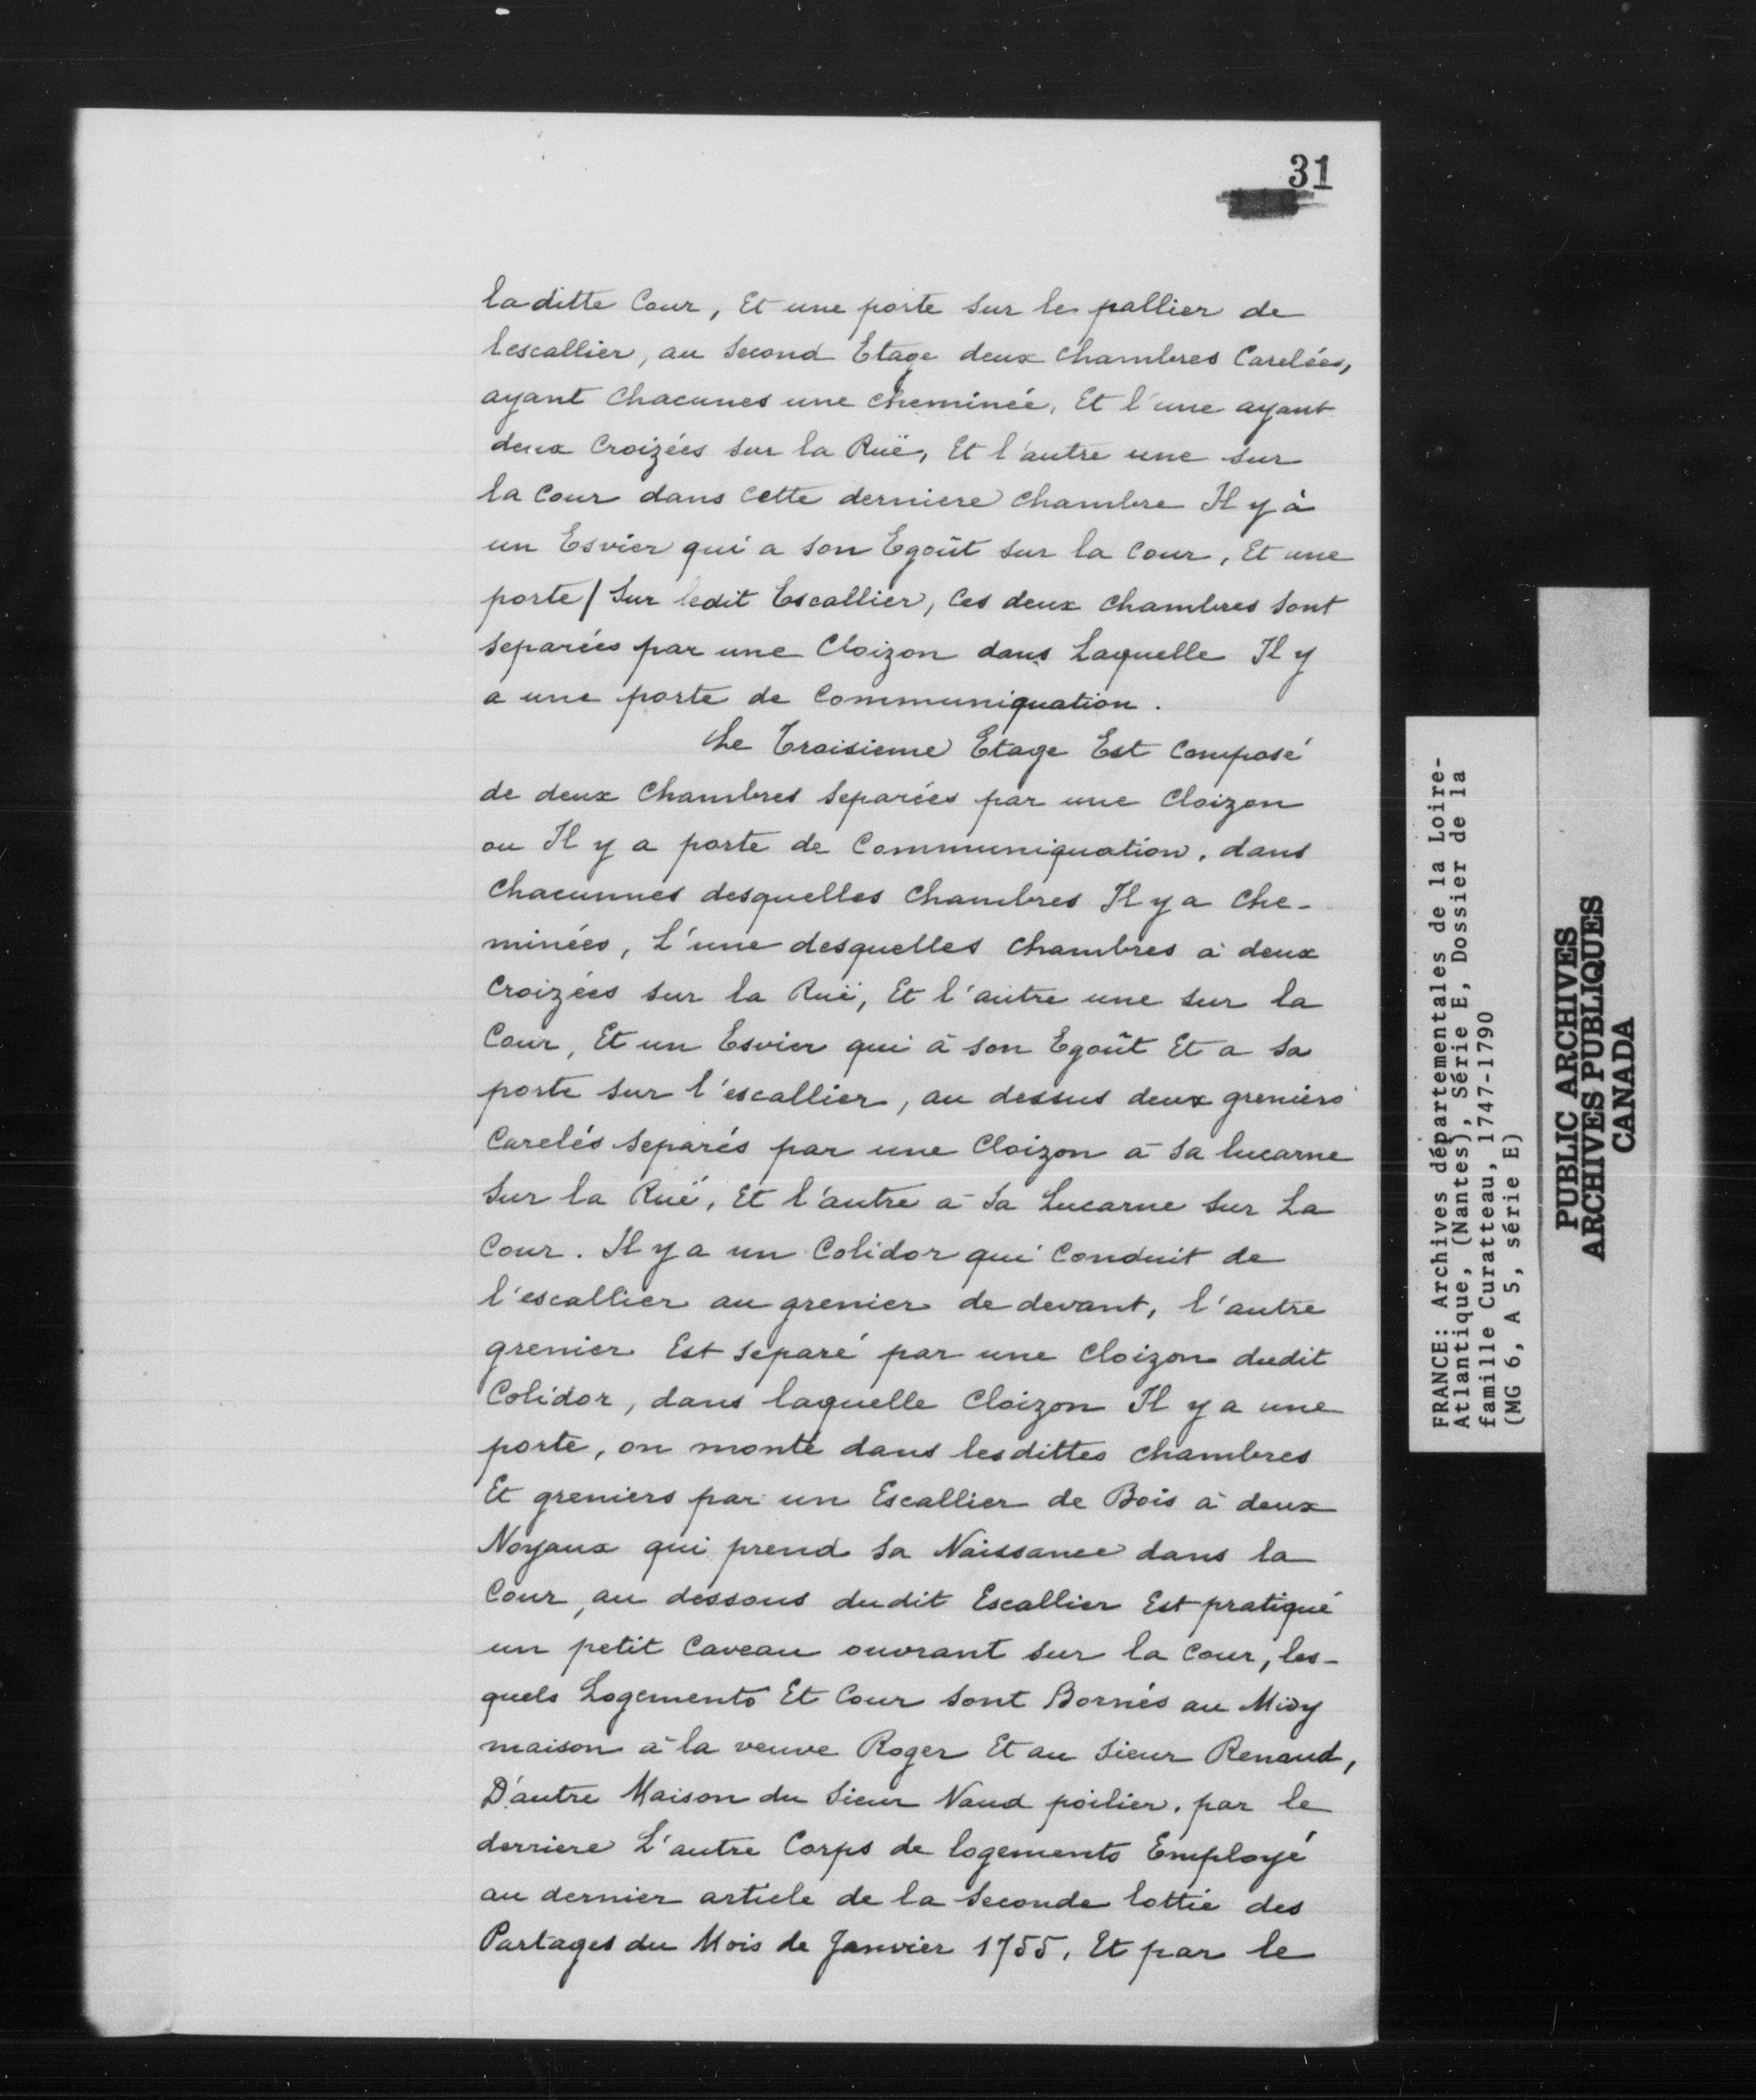 31
laditte Cour, Et une porte sur le pallier de
lescallier, au second Etage deux chambres Carelées,
ayant chacunes une cheminée, Et l'une ayant
deux Croizées sur la Ruë, Et l'autre une sur
la Cour dans cette derniere chambre Il y à
un Esvier qui a son Egoût sur la Cour, Et une
porte / sur ledit Escallier, Ces deux chambres sont
separées par une Cloizon dans Laquelle Il y
a une porte de Communiquation.
Le Troisieme Etage Est Composé
de deux Chambres Separées par une Cloizon
ou Il y a porte de Communiquation, dans
chacunnes desquelles chambres Il y a Che-
minées, L'une desquelles chambres à deux
Croizées sur la Ruë, Et l'autre une sur la
Cour, Et un Esvier qui à son Egoût Et a sa
porte sur l'escallier, au dessus deux greniers
Carelés separés par une Cloizon à sa lucarne
sur la Ruë, Et l'autre à sa Lucarne sur La
Cour. Il y a un Colidor qui Conduit de
l'escallier au grenier de devant, l'autre
grenier Est separé par une Cloizon dudit
Colidor, dans laquelle Cloizon Il y a une
porte, on monte dans lesdittes chambres
Et greniers par un Escallier de Bois à deux
Noyaux qui prend sa Naissance dans la
Cour, au dessous dudit Escallier Est pratiqué
un petit Caveau ouvrant sur la Cour, les-
quels Logements Et Cour sont Bornés au Midy
maison à la veuve Roger Et au Sieur Renaud,
D'autre Maison du Sieur Naud poilier, par le
derriere L'autre Corps de logements Employé
au dernier article de la Seconde lottie des
Partages du Mois de Janvier 1755, Et par le
FRANCE: Archives départementales de la Loire-
Atlantique, (Nantes), Série E, Dossier de la
famille Curatteau, 1747-1790
(MG 6, A 5, série E)
PUBLIC ARCHIVES
ARCHIVES PUBLIQUES
CANADA